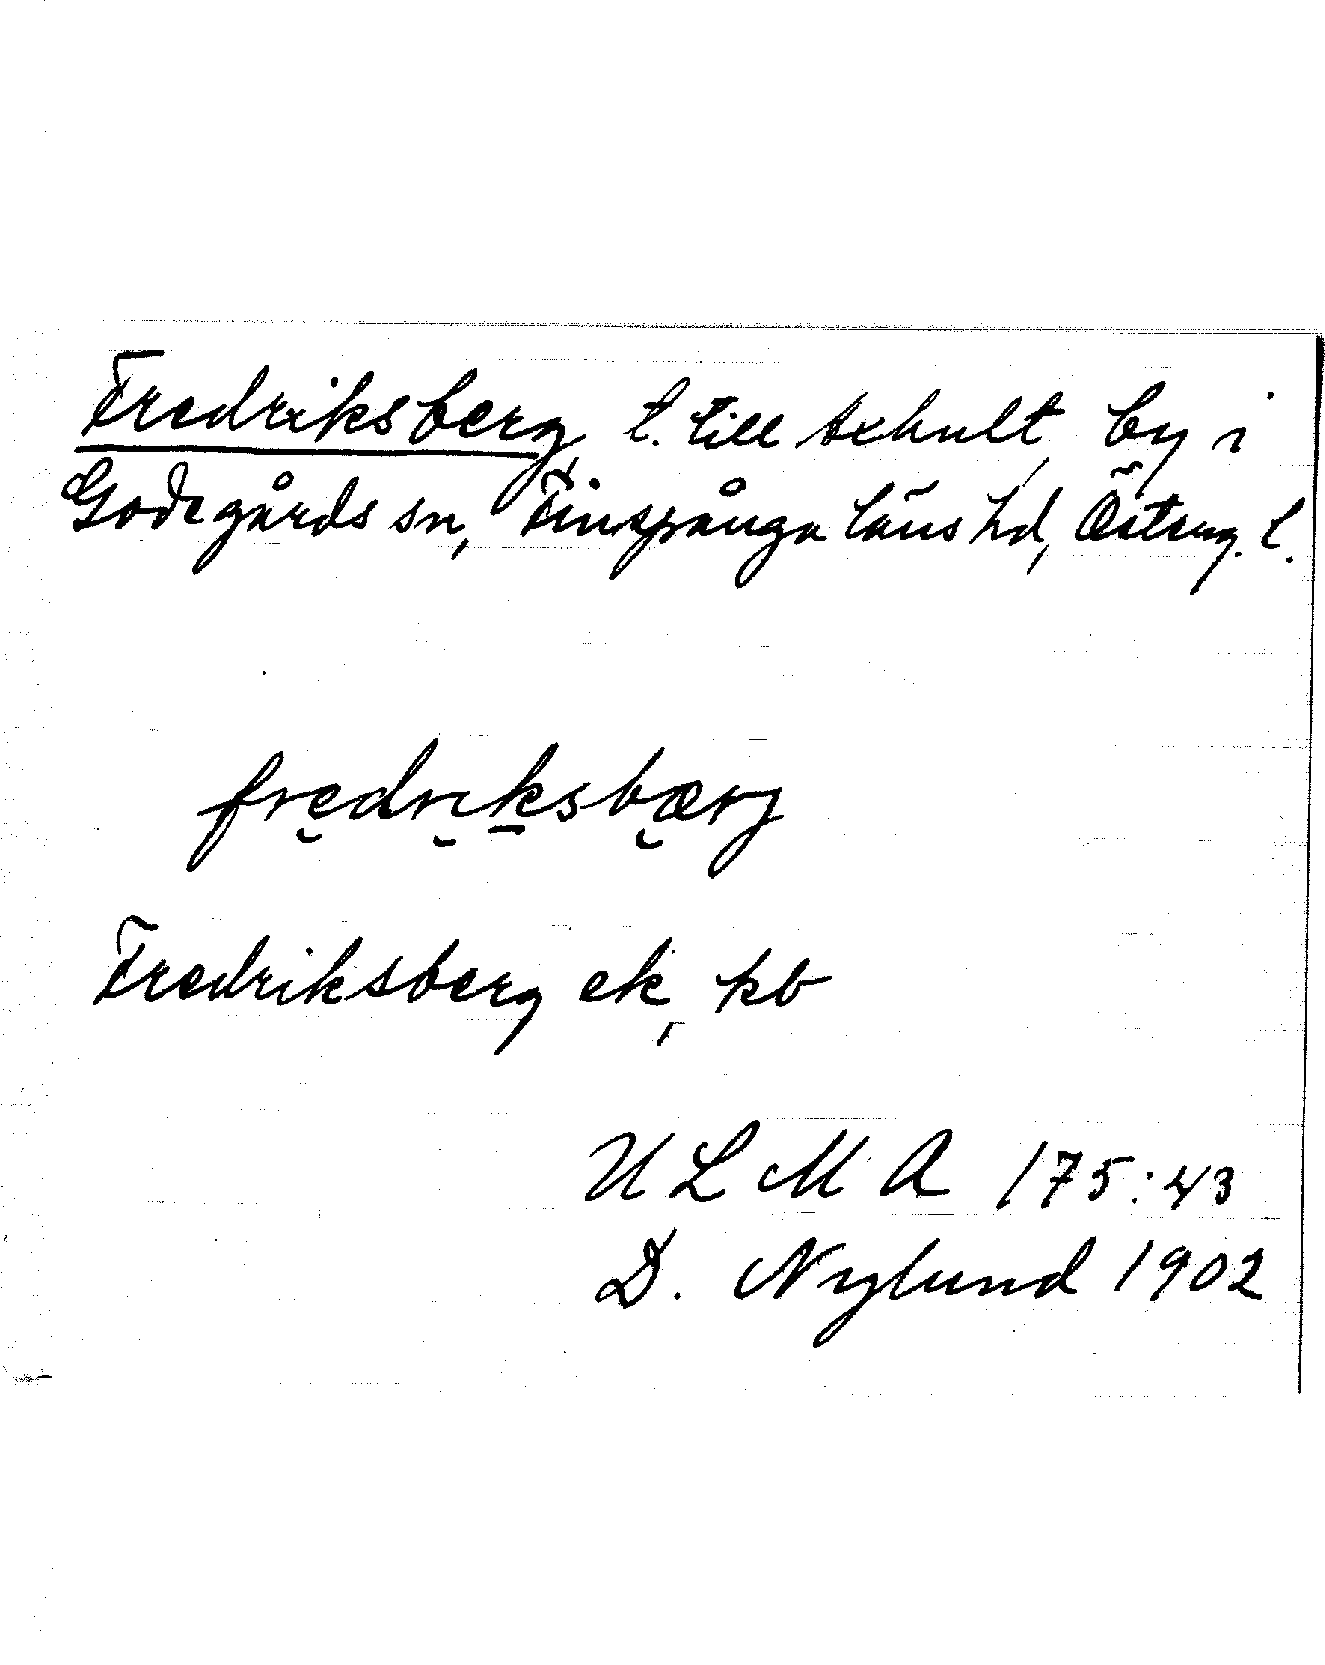 Fredriksberg, t. till Axhult, by i
Godegårds sn, Finspånga läns hd, Österg. l.
fredriksbærj
Fredriksberg ek, kb
ULMA 175:43
D. Nylund 1902